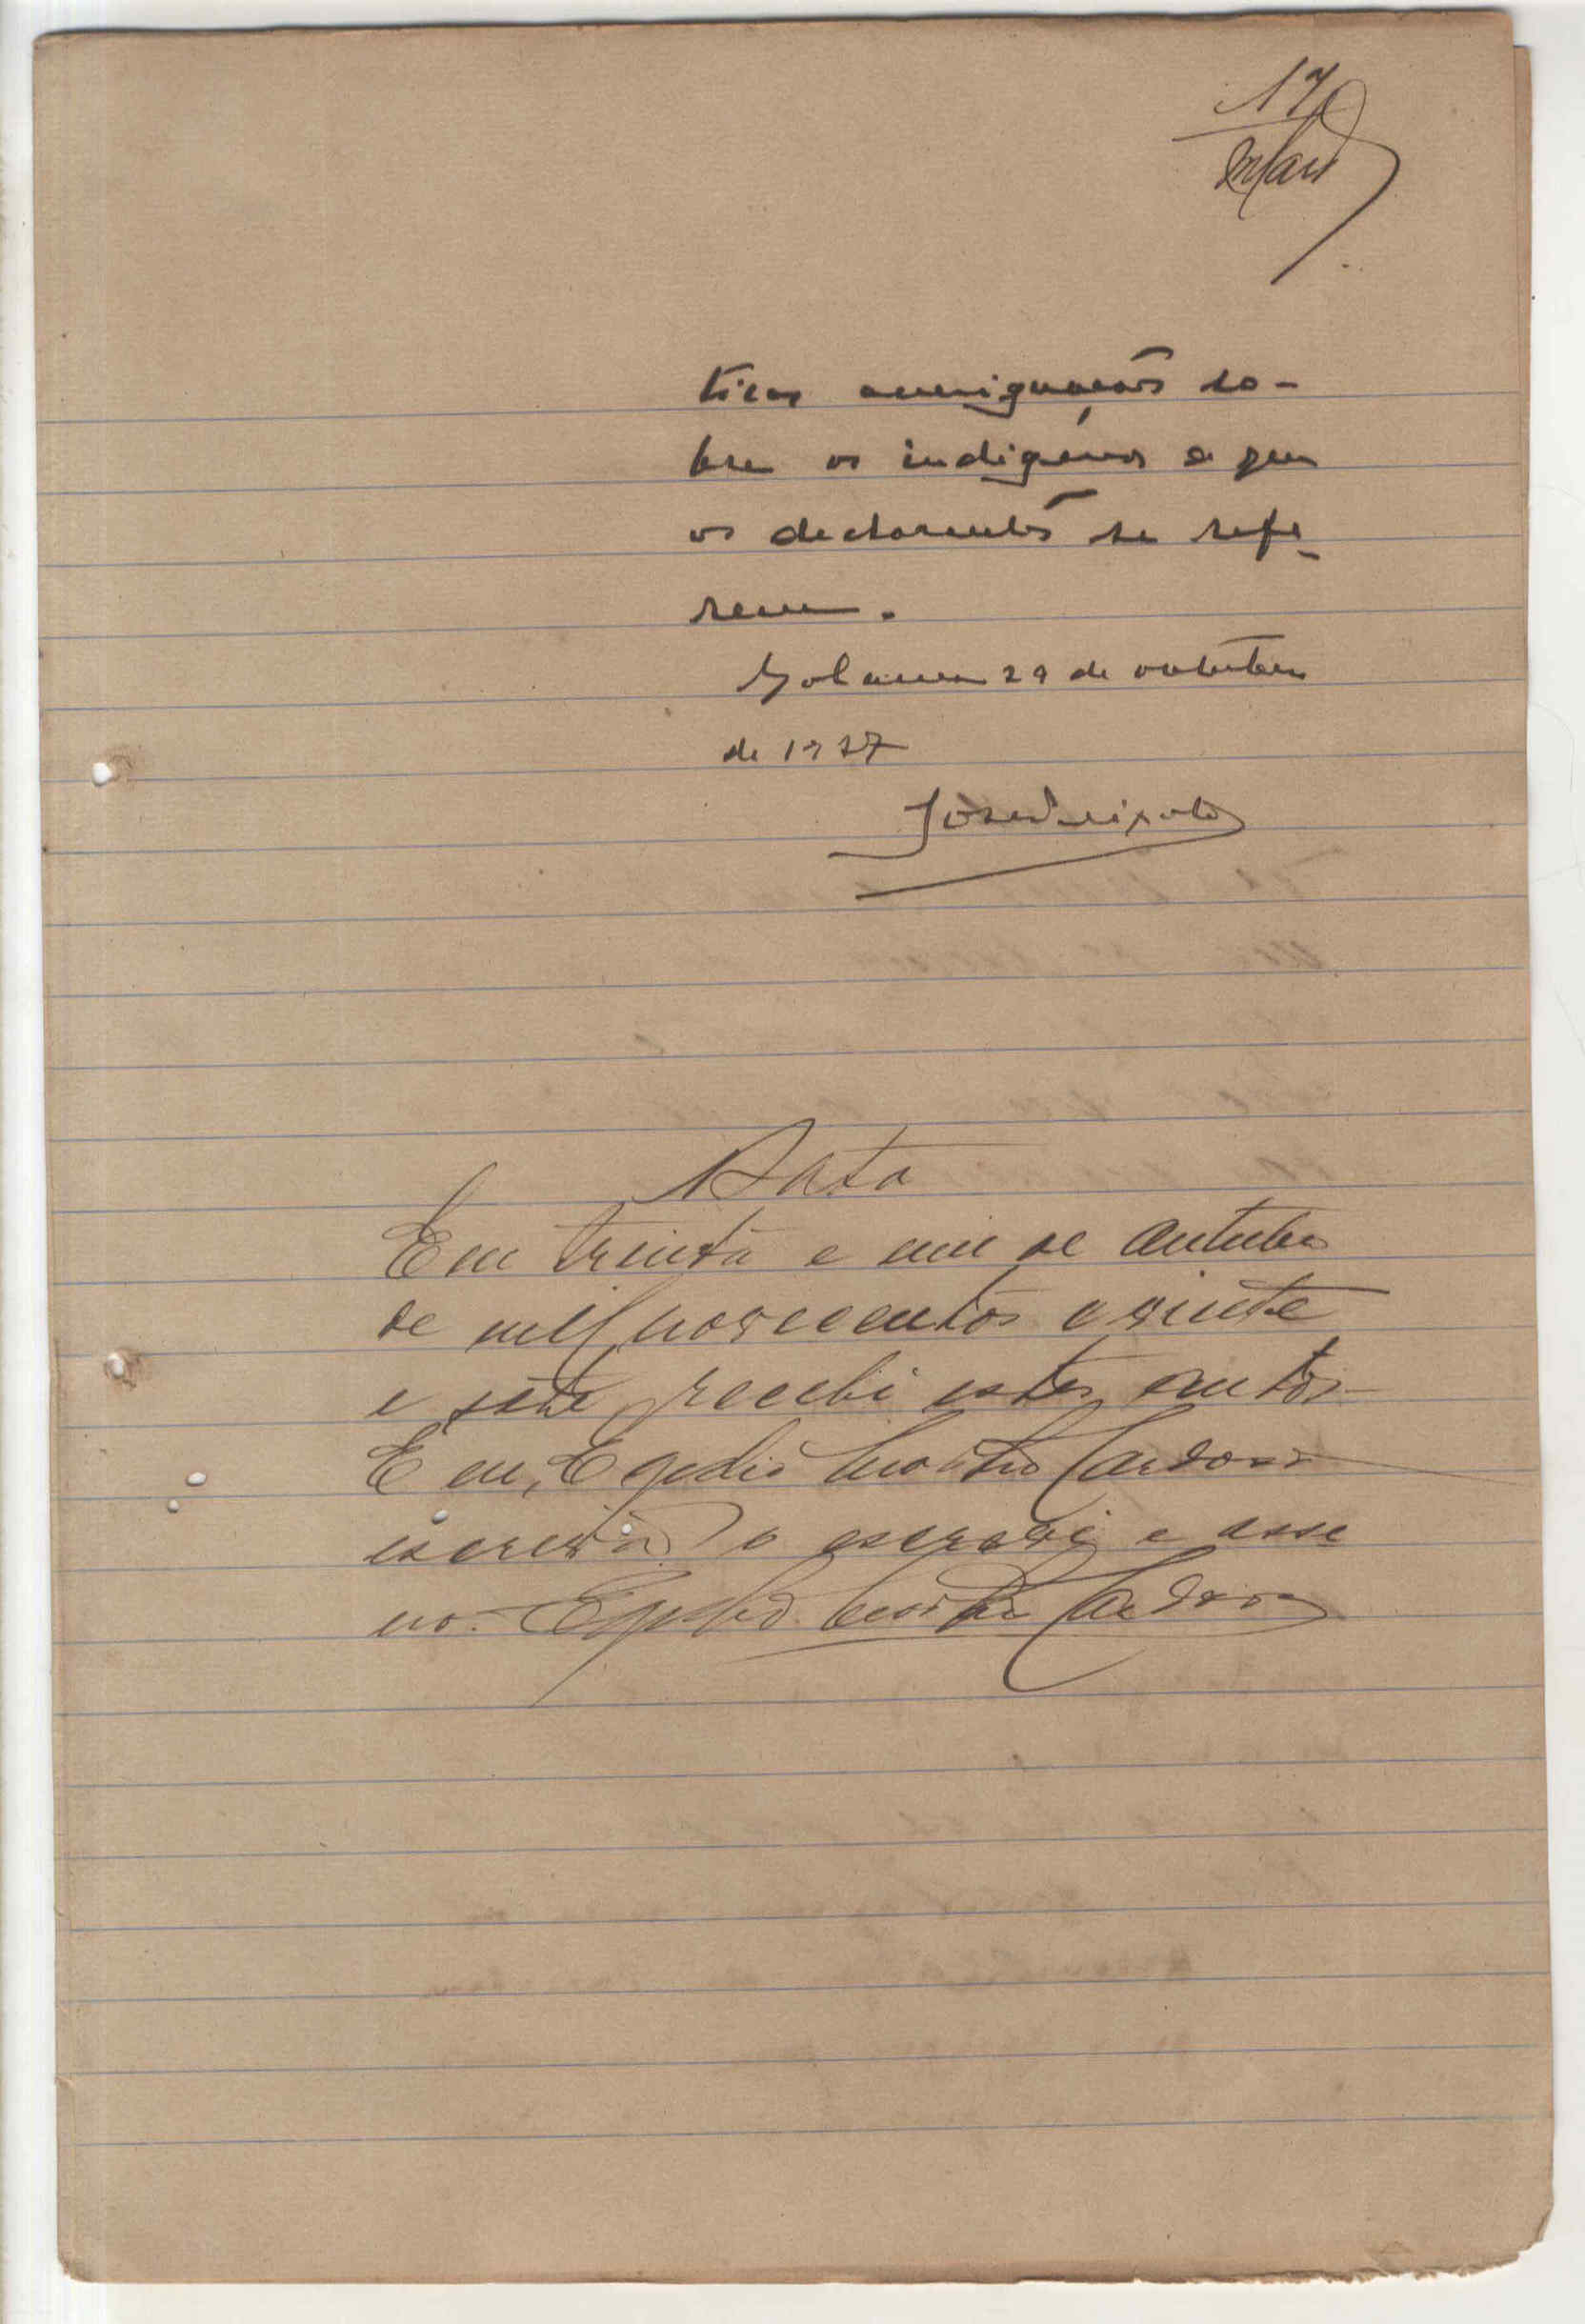 17
ticas averiguações so-
bre os indigenas a que
os declarantes se refe-
rem.
29 de outubro
de 1927
José Peixoto
Data
Em trinta e um de Outubro
de mil novecentos e vinte
e sete recebi estes autos
E eu, Egedio Cardoso
escrivão o escrevi e assi
no. Cardoso